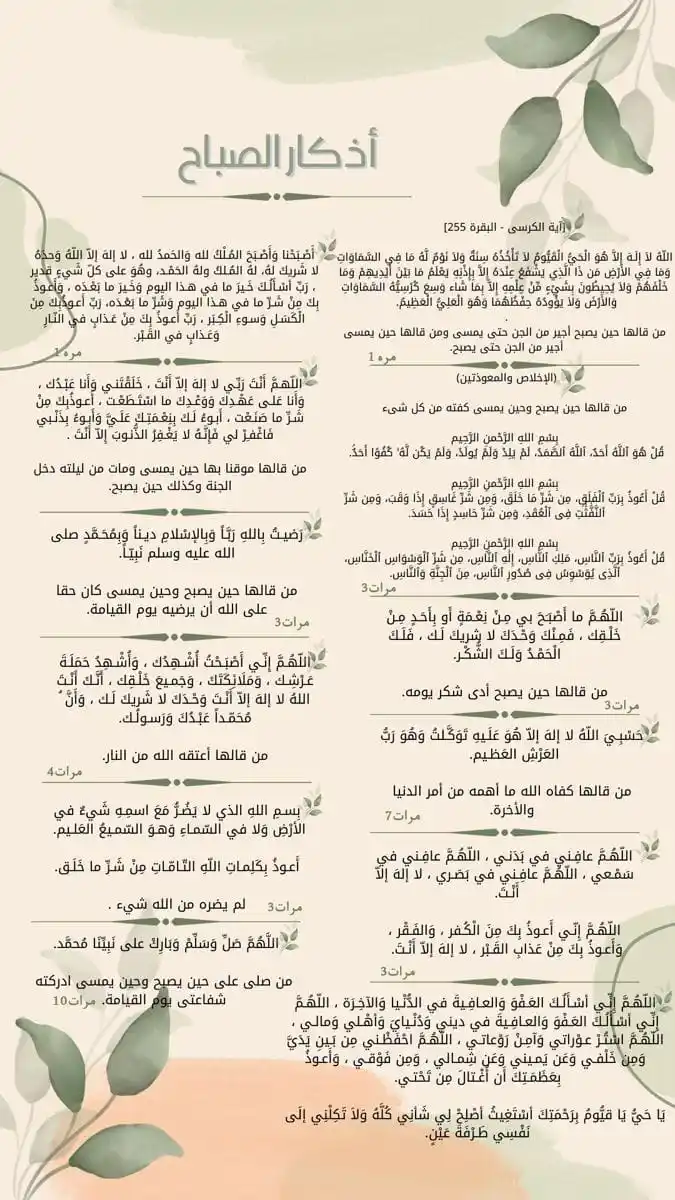 أذكار الصباح
[آية الكرسى - البقرة 255]
اللّهُ لاَ إِلَـهَ إِلاَّ هُوَ الْحَيُّ الْقَيُّومُ لاَ تَأْخُذُهُ سِنَةٌ وَلاَ نَوْمٌ لَّهُ مَا فِي السَّمَاوَاتِ
وَمَا فِي الأَرْضِ مَن ذَا الَّذِي يَشْفَعُ عِنْدَهُ إِلاَّ بِإِذْنِهِ يَعْلَمُ مَا بَيْنَ أَيْدِيهِمْ وَمَا
خَلْفَهُمْ وَلاَ يُحِيطُونَ بِشَيْءٍ مِّنْ عِلْمِهِ إِلاَّ بِمَا شَاء وَسِعَ كُرْسِيُّهُ السَّمَاوَاتِ
وَالأَرْضَ وَلاَ يَؤُودُهُ حِفْظُهُمَا وَهُوَ الْعَلِيُّ الْعَظِيمُ.
.
من قالها حين يصبح أجير من الجن حتى يمسى ومن قالها حين يمسى
أجير من الجن حتى يصبح.
مره 1
(الإخلاص والمعوذتين)
من قالها حين يصبح وحين يمسى كفته من كل شىء
بِسْمِ اللهِ الرَّحْمنِ الرَّحِيم
قُلْ هُوَ ٱللَّهُ أَحَدٌ، ٱللَّهُ ٱلصَّمَدُ، لَمْ يَلِدْ وَلَمْ يُولَدْ، وَلَمْ يَكُن لَّهُۥ كُفُوًا أَحَدٌۢ.
بِسْمِ اللهِ الرَّحْمنِ الرَّحِيم
قُلْ أَعُوذُ بِرَبِّ ٱلْفَلَقِ، مِن شَرِّ مَا خَلَقَ، وَمِن شَرِّ غَاسِقٍ إِذَا وَقَبَ، وَمِن شَرِّ
ٱلنَّفَّٰثَٰتِ فِى ٱلْعُقَدِ، وَمِن شَرِّ حَاسِدٍ إِذَا حَسَدَ.
بِسْمِ اللهِ الرَّحْمنِ الرَّحِيم
قُلْ أَعُوذُ بِرَبِّ ٱلنَّاسِ، مَلِكِ ٱلنَّاسِ، إِلَٰهِ ٱلنَّاسِ، مِن شَرِّ ٱلْوَسْوَاسِ ٱلْخَنَّاسِ،
ٱلَّذِى يُوَسْوِسُ فِى صُدُورِ ٱلنَّاسِ، مِنَ ٱلْجِنَّةِ وَٱلنَّاسِ.
مرات3
اللّهُـمَّ ما أَصْبَـَحَ بي مِـنْ نِعْـمَةٍ أَو بِأَحَـدٍ مِـنْ
خَلْـقِك ، فَمِـنْكَ وَحْـدَكَ لا شريكَ لَـك ، فَلَـكَ
الْحَمْـدُ وَلَـكَ الشُّكْـر.
من قالها حين يصبح أدى شكر يومه.
مرات3
حَسْبِـيَ اللّهُ لا إلهَ إلاّ هُوَ عَلَـيهِ تَوَكَّـلتُ وَهُوَ رَبُّ
العَرْشِ العَظـيم.
من قالها كفاه الله ما أهمه من أمر الدنيا
والأخرة.
مرات7
اللّهُـمَّ عافِـني في بَدَنـي ، اللّهُـمَّ عافِـني في
سَمْـعي ، اللّهُـمَّ عافِـني في بَصَـري ، لا إلهَ إلاّ
أَنْـتَ.
اللّهُـمَّ إِنّـي أَعـوذُ بِكَ مِنَ الْكُـفر ، وَالفَـقْر ،
وَأَعـوذُ بِكَ مِنْ عَذابِ القَـبْر ، لا إلهَ إلاّ أَنْـتَ.
مرات3
اللّهُـمَّ إِنِّـي أسْـأَلُـكَ العَـفْوَ وَالعـافِـيةَ في الدُّنْـيا وَالآخِـرَة ، اللّهُـمَّ
إِنِّي أسْـأَلُـكَ العَـفْوَ وَالعـافِـيةَ في ديني وَدُنْـيايَ وَأهْـلي وَمالـي ،
اللّهُـمَّ اسْتُـرْ عـوْراتي وَآمِـنْ رَوْعاتـي ، اللّهُـمَّ احْفَظْـني مِن بَـينِ يَدَيَّ
وَمِن خَلْفـي وَعَن يَمـيني وَعَن شِمـالي ، وَمِن فَوْقـي ، وَأَعـوذُ
بِعَظَمَـتِكَ أَن أُغْـتالَ مِن تَحْتـي.
يَا حَيُّ يَا قيُّومُ بِرَحْمَتِكَ أسْتَغِيثُ أصْلِحْ لِي شَأنِي كُلَّهُ وَلاَ تَكِلْنِي إلَى
نَفْسِي طَـرْفَةَ عَيْنٍ.
أَصْبَـحْنا وَأَصْبَـحَ المُـلْكُ لله وَالحَمدُ لله ، لا إلهَ إلاّ اللّهُ وَحدَهُ
لا شَريكَ لهُ، لهُ المُـلكُ ولهُ الحَمْـد، وهُوَ على كلّ شَيءٍ قدير
، رَبِّ أسْـأَلُـكَ خَـيرَ ما في هـذا اليوم وَخَـيرَ ما بَعْـدَه ، وَأَعـوذُ
بِكَ مِنْ شَـرِّ ما في هـذا اليوم وَشَرِّ ما بَعْـدَه، رَبِّ أَعـوذُبِكَ مِنَ
الْكَسَـلِ وَسـوءِ الْكِـبَر ، رَبِّ أَعـوذُ بِكَ مِنْ عَـذابٍ في النّـارِ
وَعَـذابٍ في القَـبْر.
مره 1
اللّهـمَّ أَنْتَ رَبِّـي لا إلهَ إلاّ أَنْتَ ، خَلَقْتَنـي وَأَنا عَبْـدُك ،
وَأَنا عَلـى عَهْـدِكَ وَوَعْـدِكَ ما اسْتَـطَعْـت ، أَعـوذُبِكَ مِنْ
شَـرِّ ما صَنَـعْت ، أَبـوءُ لَـكَ بِنِعْـمَتِـكَ عَلَـيَّ وَأَبـوءُ بِذَنْـبي
فَاغْفـِرْ لي فَإِنَّـهُ لا يَغْـفِرُ الذُّنـوبَ إِلاّ أَنْتَ .
من قالها موقنا بها حين يمسى ومات من ليلته دخل
الجنة وكذلك حين يصبح.
رَضيـتُ بِاللهِ رَبَّـاً وَبِالإسْلامِ ديـناً وَبِمُحَـمَّدٍ صلى
الله عليه وسلم نَبِيّـاً.
من قالها حين يصبح وحين يمسى كان حقا
على الله أن يرضيه يوم القيامة.
مرات3
اللّهُـمَّ إِنِّـي أَصْبَـحْتُ أُشْـهِدُك ، وَأُشْـهِدُ حَمَلَـةَ
عَـرْشِـك ، وَمَلَائِكَتَكَ ، وَجَمـيعَ خَلْـقِك ، أَنَّـكَ أَنْـتَ
اللهُ لا إلهَ إلاّ أَنْـتَ وَحْـدَكَ لا شَريكَ لَـك ، وَأَنَّ
مُحَمّـداً عَبْـدُكَ وَرَسـولُـك.
من قالها أعتقه الله من النار.
مرات4
بِسـمِ اللهِ الذي لا يَضُـرُّ مَعَ اسمِـهِ شَيءٌ في
الأرْضِ وَلا في السّمـاءِ وَهـوَ السّمـيعُ العَلـيم.
أَعـوذُ بِكَلِمـاتِ اللّهِ التّـامّـاتِ مِنْ شَـرِّ ما خَلَـق.
لم يضره من الله شيء .
مرات3
اللَّهُمَّ صَلِّ وَسَلِّمْ وَبَارِكْ على نَبِيِّنَا مُحمَّد.
من صلى على حين يصبح وحين يمسى ادركته
شفاعتى يوم القيامة.
مرات10